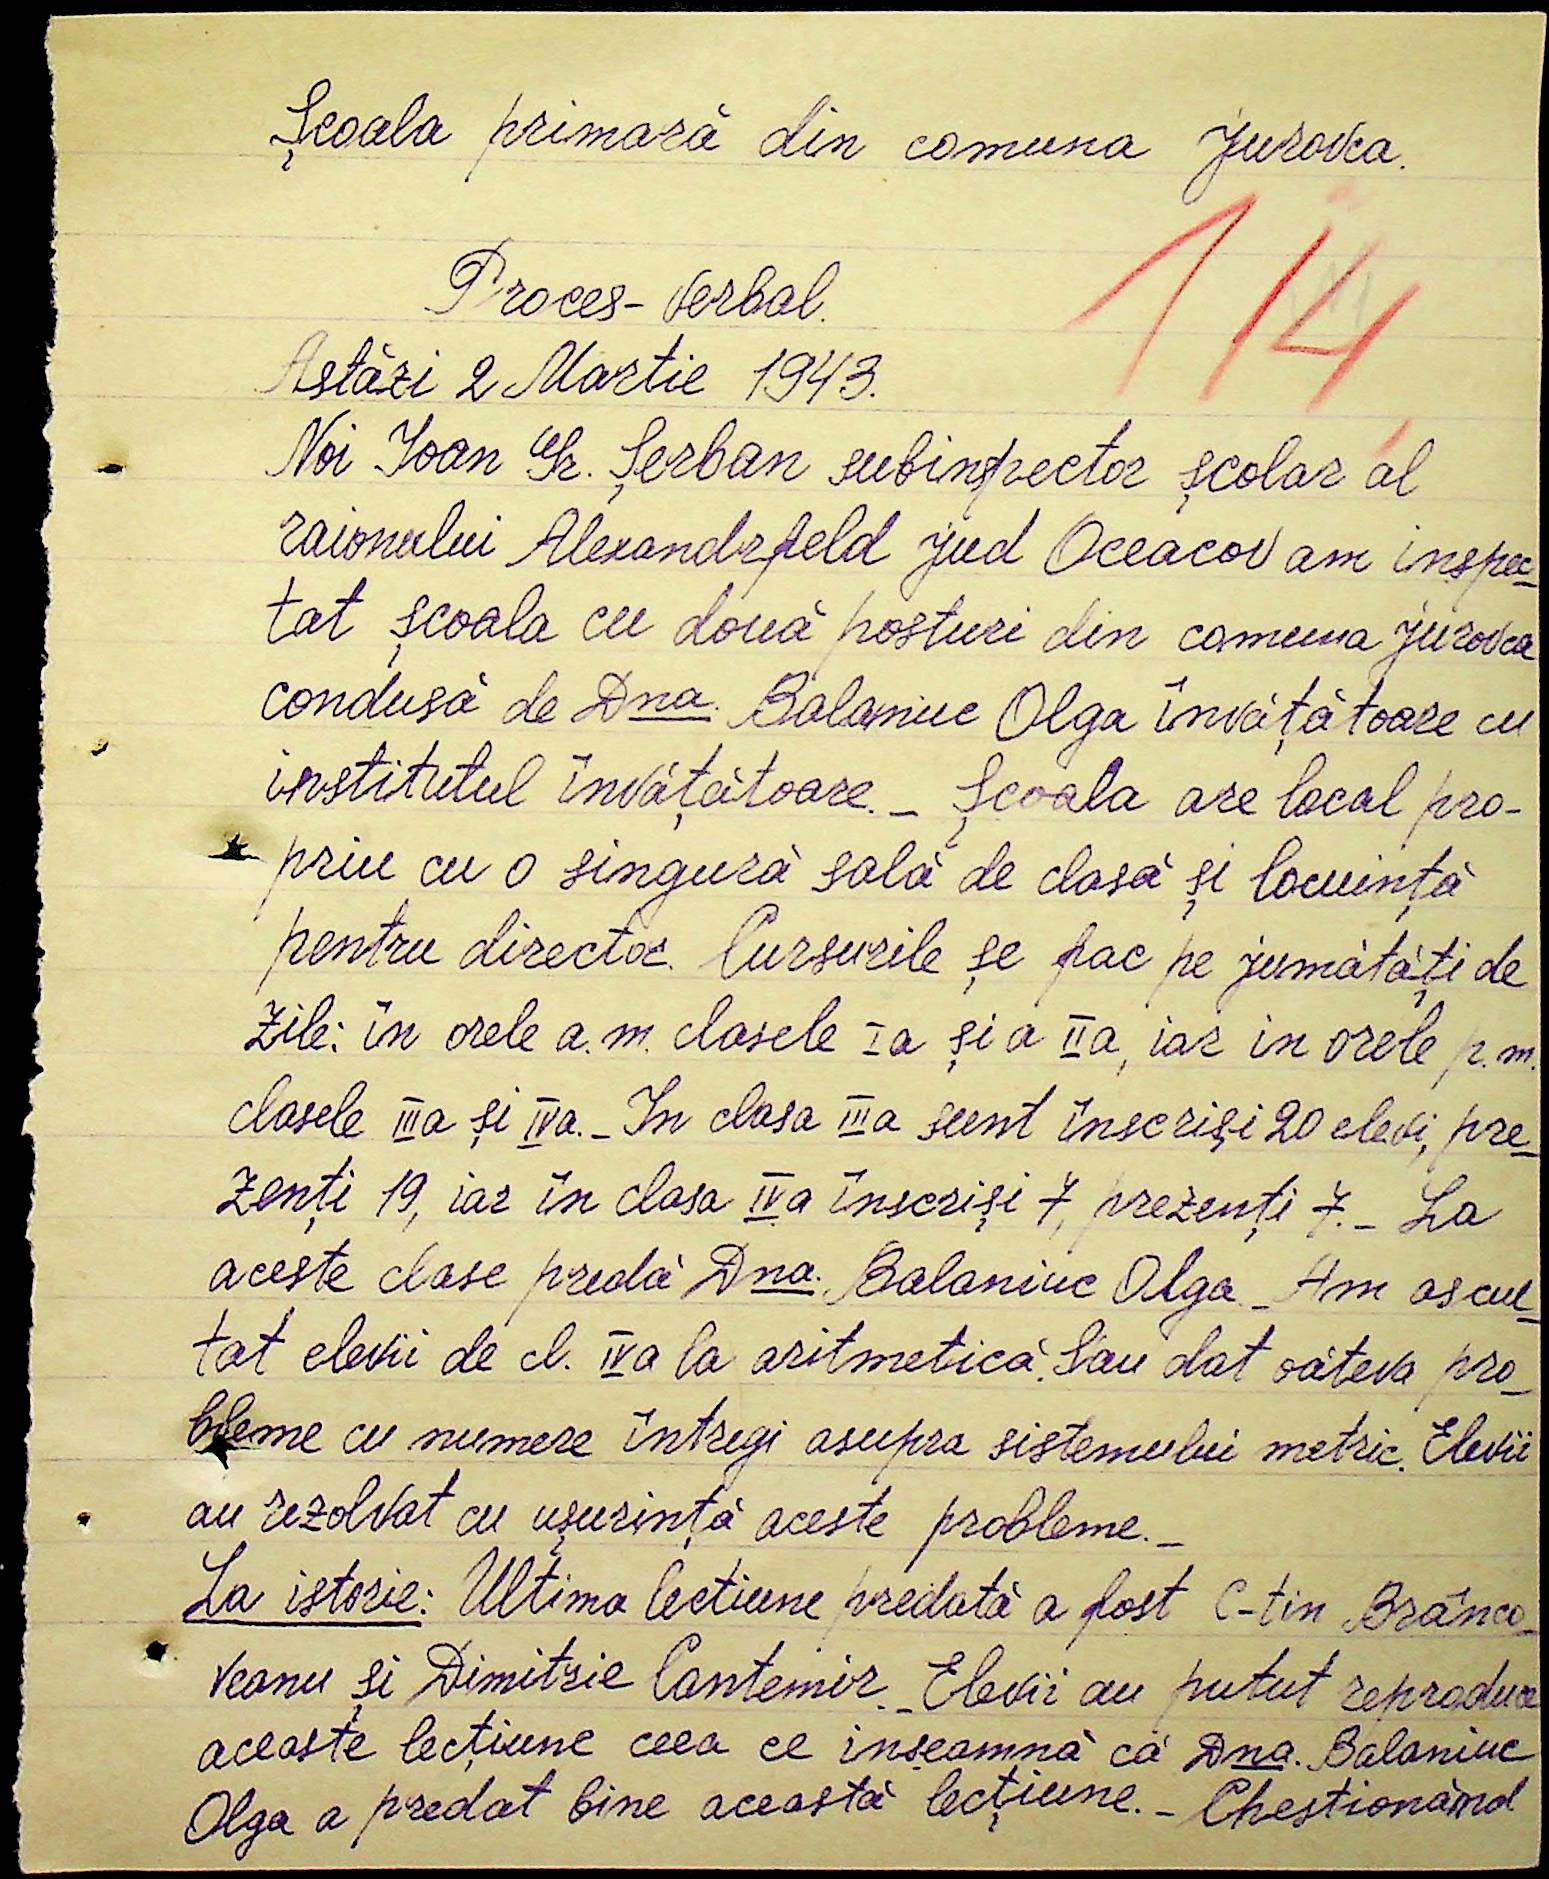 Școala primară din comuna Jurovca.
114
Proces-verbal.
Astăzi 2 Martie 1943.
Noi Ioan Gr. Șerban subinspector școlar al
raionului Alexandrfeld jud Oceacov am inspec-
tat școala cu două posturi din comuna Jurovca
condusă de Dna. Balaniuc Olga învățătoare cu
institutul învățătoare. - Școala are local pro-
priu cu o singură sală de clasă și locuință
pentru director. Cursurile se fac pe jumătăți de
zile: în orele a.m. clasele Ia și a IIa, iar in orele p.m.
clasele IIIa și IVa. - In clasa IIIa sunt înscriși 20 elevi, pre-
zenți 19, iar în clasa IVa înscriși 7, prezenți 7. - La
aceste clase predă Dna. Balaniuc Olga. - Am ascul-
tat elevii de cl. IVa la aritmetică. Sau dat câteva pro-
bleme cu numere întregi asupra sistemului metric. Elevii
au rezolvat cu ușurință aceste probleme. -
La istorie: Ultima lectiune predată a fost C-tin Brânco-
veanu și Dimitrie Cantemir. - Elevii au putut reproduce
aceaste lecțiune ceea ce inseamnă că Dna. Balaniuc
Olga a predat bine această lecțiune. - Chestionând